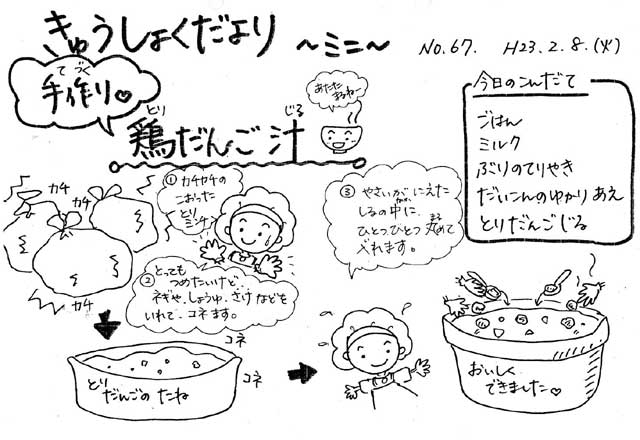 きゅうしょくだより ～ミニ～ No.67. H23.2.8.(火)
手作り♡
てづく
あたたまるねー
鶏だんご汁
とり
じる
今日のこんだて
ごはん
ミルク
ぶりのてりやき
だいこんのゆかりあえ
とりだんごじる
カチ
カチ
カチ
① カチカチの
こおった
とり
ミンチ
② とっても
つめたいけど
ネギや、しょうゆ、さけなどを
いれて、コネます。
③ やさいがにえた
しるの中に、
なか
ひとつひとつ丸めて
まる
入れます。
コネ
コネ
とり
だんごの たね
おいしく
できました♡